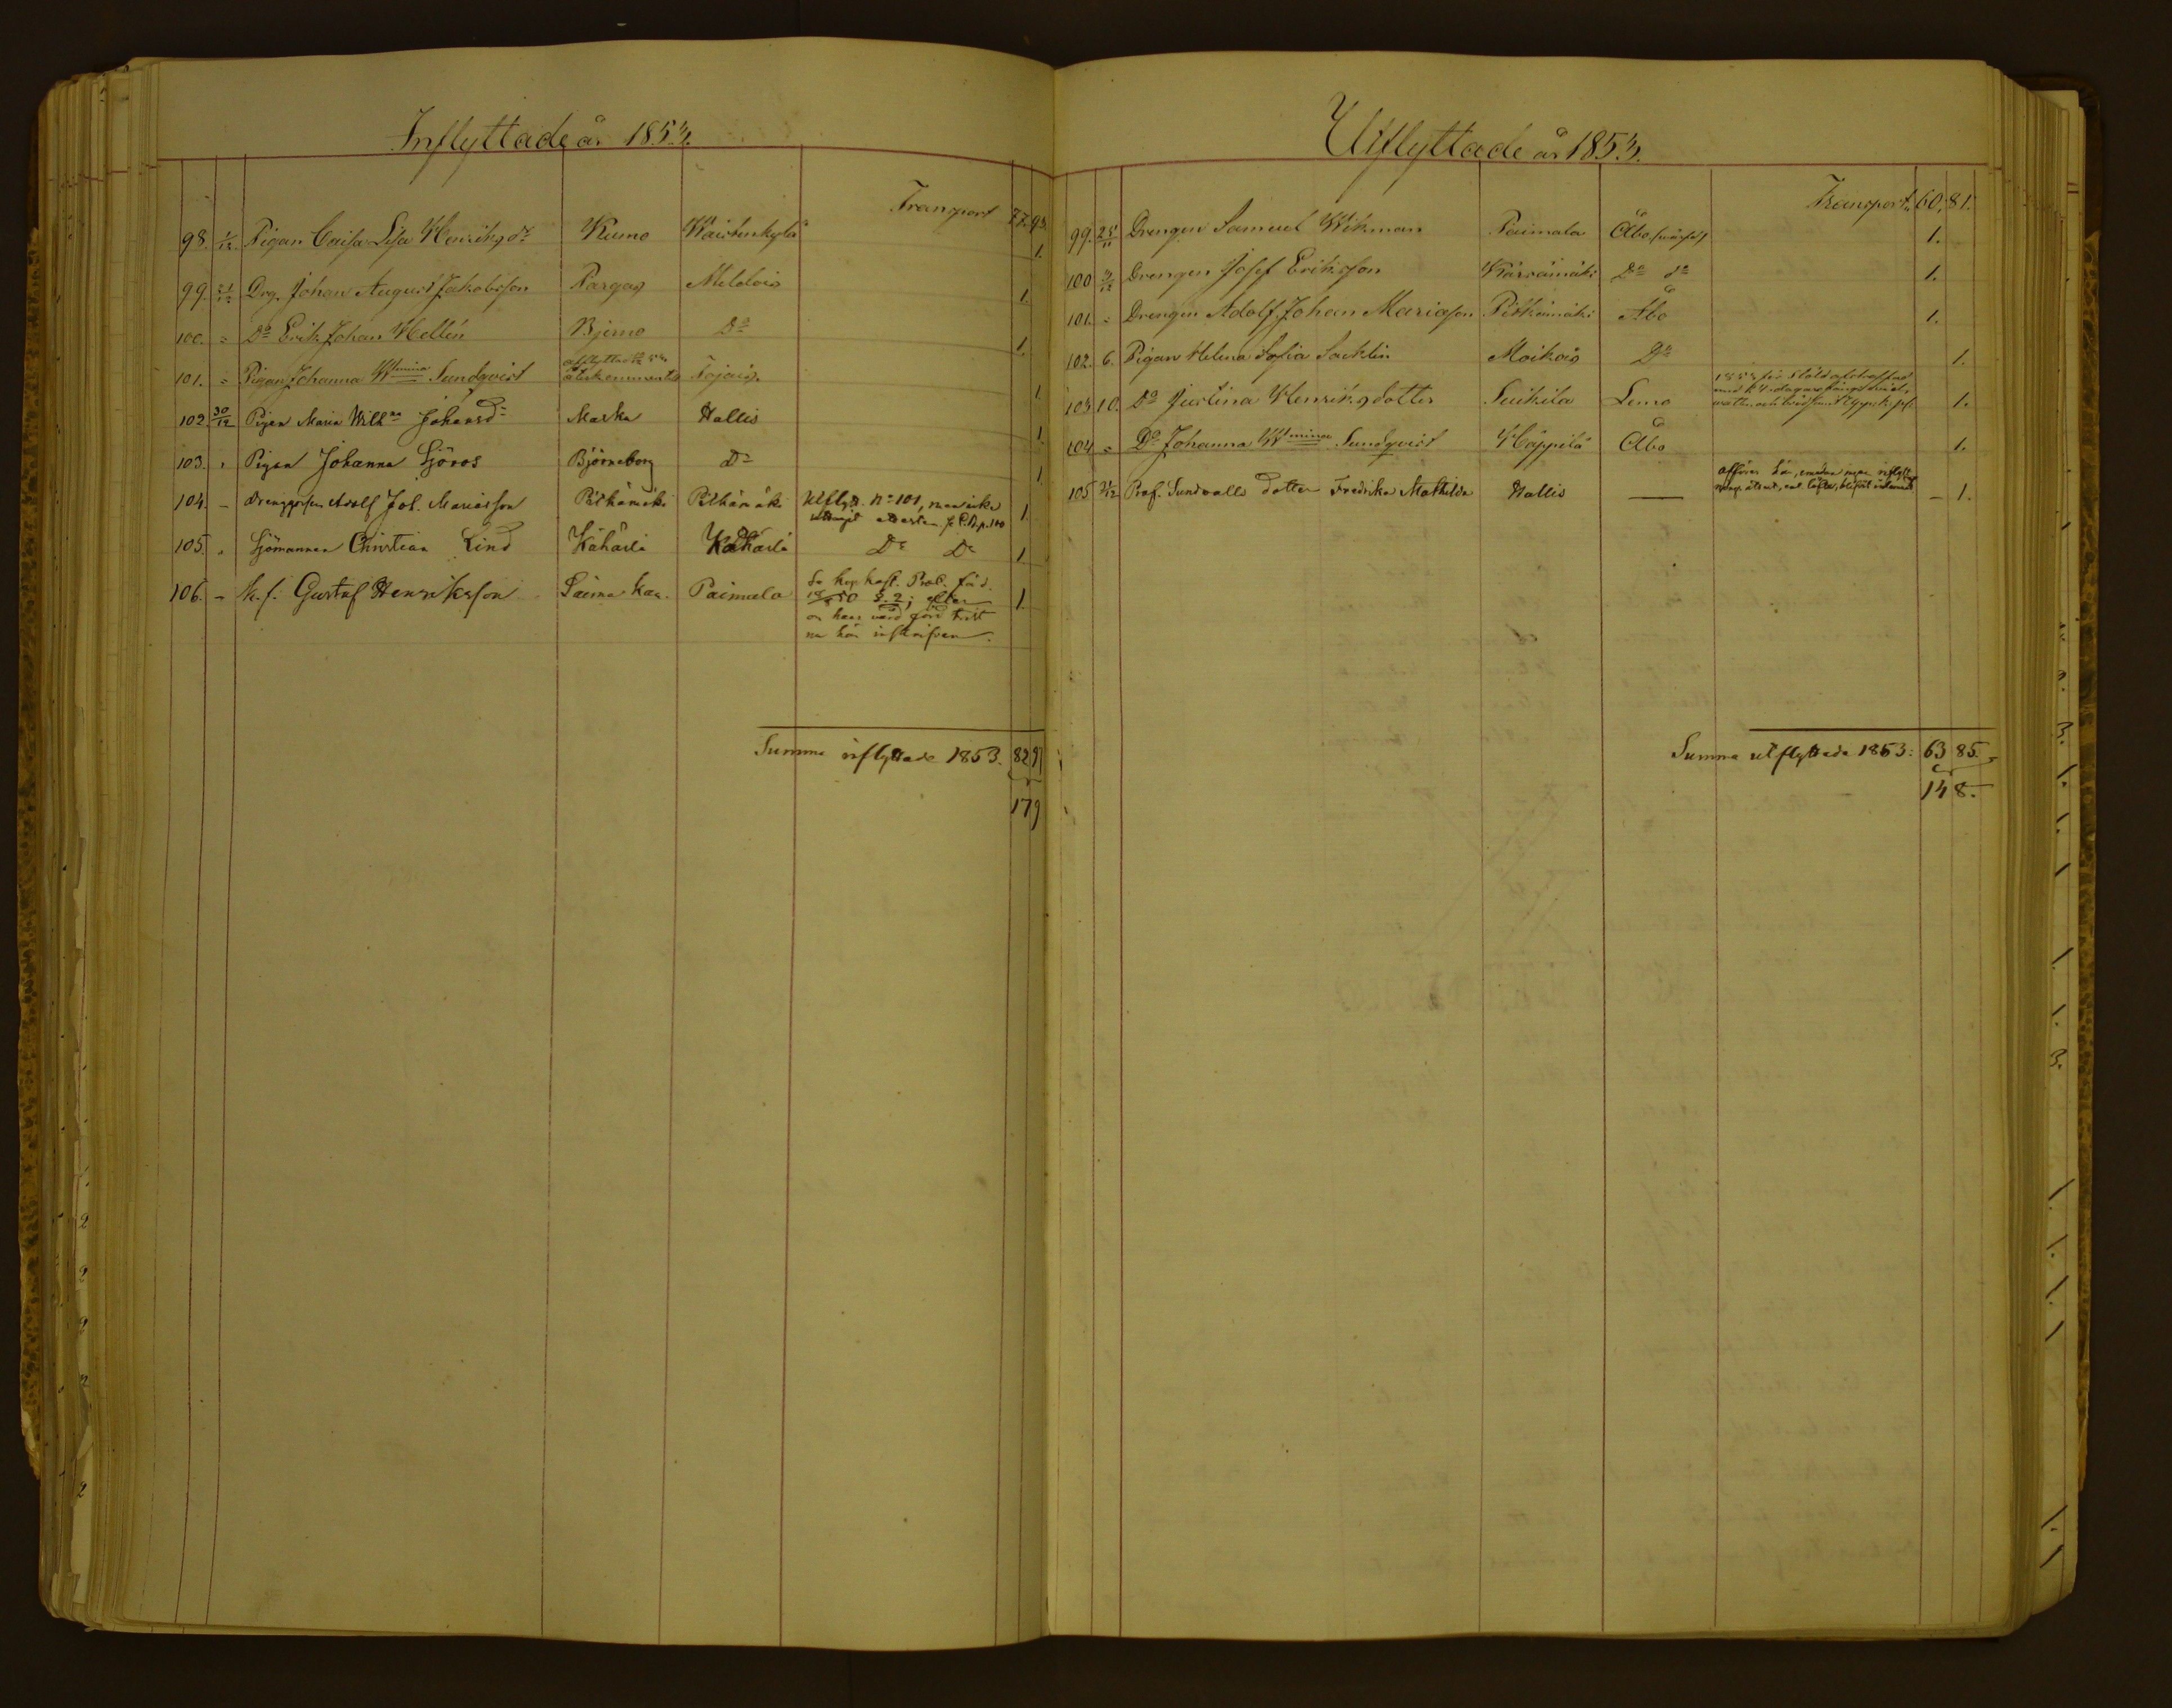 Inflyttade år 1853.
Transport 77. 93.
98. 1/12 Pigan Caisa Lisa Henriksdr Kumo Waistenkylä 1.
99. 21/12 Drg. Johan August Jakobsson Pargas Mildois 1.
100. = Do Erik Johan Hellén Bjerno Do 1.
101. = Pigan Johanna Wmina Sundqvist återkommen Tojais. 1.
102. 30/12 Pigan Maria Wilhna Johansd= Masku Hallis 1.
103. " Pigan Johanna Sjöros Björneborg do 1
104. – Drenggossen Adolf Joh. Mariasson Pitkämäki Pitkämäki Utflytt. No 101, men icke 1.
uttagit attesten
105. " Sjömannen Christian Lind Kähärlä Kähärlä Do Do 1.
106. – Gustaf Henriksson Paimala 1.
1850 §. 2;
Summa inflyttade 1853. 82 97
179
Utflyttade år 1853.
Transport 60, 81.
99. 25/11 Drengen Samuel Wikman Paimala Åbo 1.
100 Drengen Josef Eriksson Kärsämäki Do do 1.
101. = Drengen Adolf Johan Mariasson Pitkämäki Åbo 1.
102. 6. Pigan Helena Sofia Sacklin Moikois Do 1.
103 10. Do Justina Henriksdotter Suikila Lemo 1.
104 = Do Johanna Wmina Sundqvist Häppilä Åbo 1.
105 31/12 Prof. Sundvalls dotter Fredrika Mathilda Hallis — – 1.
Summa utflyttade 1853: 63 85.
148.